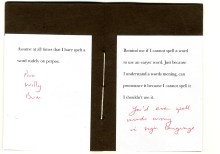 Assume at all times that I have spelt a
word rudely on purpose.
Poo
Willy
Bum
Remind me if I cannot spell a word
to use an easier word. Just because
I understand a words meaning, can
pronounce it because I cannot spell it
I shouldn't use it.
You'd even spell
words wrong
in sign language